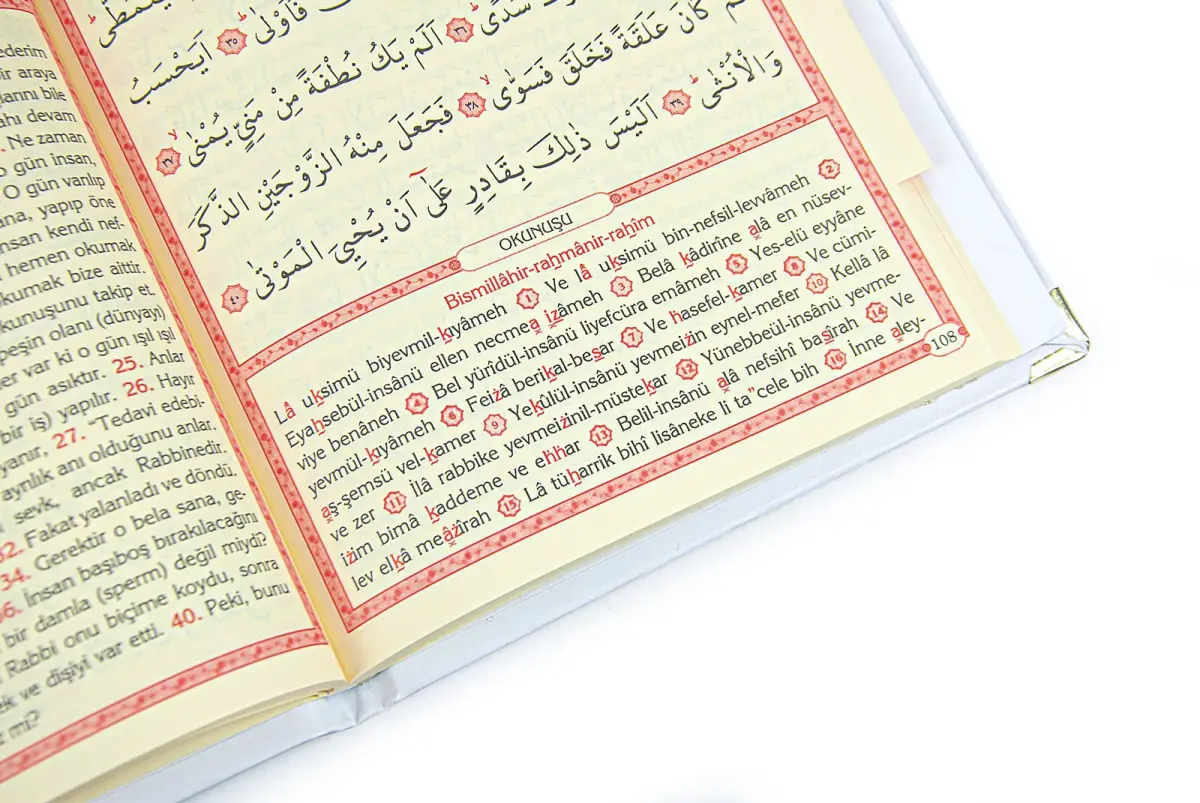 ederim
bir araya
ahı devam
Ne zaman
o gün insan,
O gün varılıp
yapıp öne
insan kendi nef-
hemen okumak
okumak bize aittir.
okunuşunu takip et.
peşin olanı (dünyayı)
var ki o gün ışıl ışıl
gün asıktır. 25. Anlar
bir iş) yapılır. 26. Hayır
27. "Tedavi edebi-
ayrılık anı olduğunu anlar.
sevk, ancak Rabbinedir.
32. Fakat yalanladı ve döndü.
34. Gerektir o bela sana, ge-
36. İnsan başıboş bırakılacağını
bir damla (sperm) değil miydi?
Rabbi onu biçime koydu, sonra
ve dişiyi var etti. 40. Peki, bunu
mi?
فَاَوْلٰى ﴿٣٥﴾ اَيَحْسَبُ
سُدًى ﴿٣٦﴾ اَلَمْ يَكُ نُطْفَةً مِنْ مَنِيٍّ يُمْنٰى ﴿٣٧﴾
كَانَ عَلَقَةً فَخَلَقَ فَسَوّٰى ﴿٣٨﴾ فَجَعَلَ مِنْهُ الزَّوْجَيْنِ الذَّكَرَ
وَالْاُنْثٰى ﴿٣٩﴾ اَلَيْسَ ذٰلِكَ بِقَادِرٍ عَلٰٓى اَنْ يُحْيِيَ الْمَوْتٰى ﴿٤٠﴾
OKUNUŞU
Bismillâhir-rahmânir-rahîm
Lâ uksimü biyevmil-kıyâmeh 1 Ve lâ uksimü bin-nefsil-levvâmeh 2
Eyahsebül-insânü ellen necmea izâmeh 3 Belâ kâdirîne alâ en nüsev-
viye benâneh 4 Bel yürîdül-insânü liyefcüra emâmeh 5 Yes-elü eyyâne
yevmül-kıyâmeh 6 Feiżâ berikal-besar 7 Ve hasefel-kamer 8 Ve cümi-
aş-şemsü vel-kamer 9 Yekûlül-insânü yevmeiżin eynel-mefer 10 Kellâ lâ
ve zer 11 İlâ rabbike yevmeiżinil-müstekar 12 Yünebbeül-insânü yevme-
iżim bimâ kaddeme ve ehhar 13 Belil-insânü alâ nefsihî basîrah 14 Ve
lev elkâ meâżîrah 15 Lâ tüharrik bihî lisâneke li ta"cele bih 16 İnne aley-
108